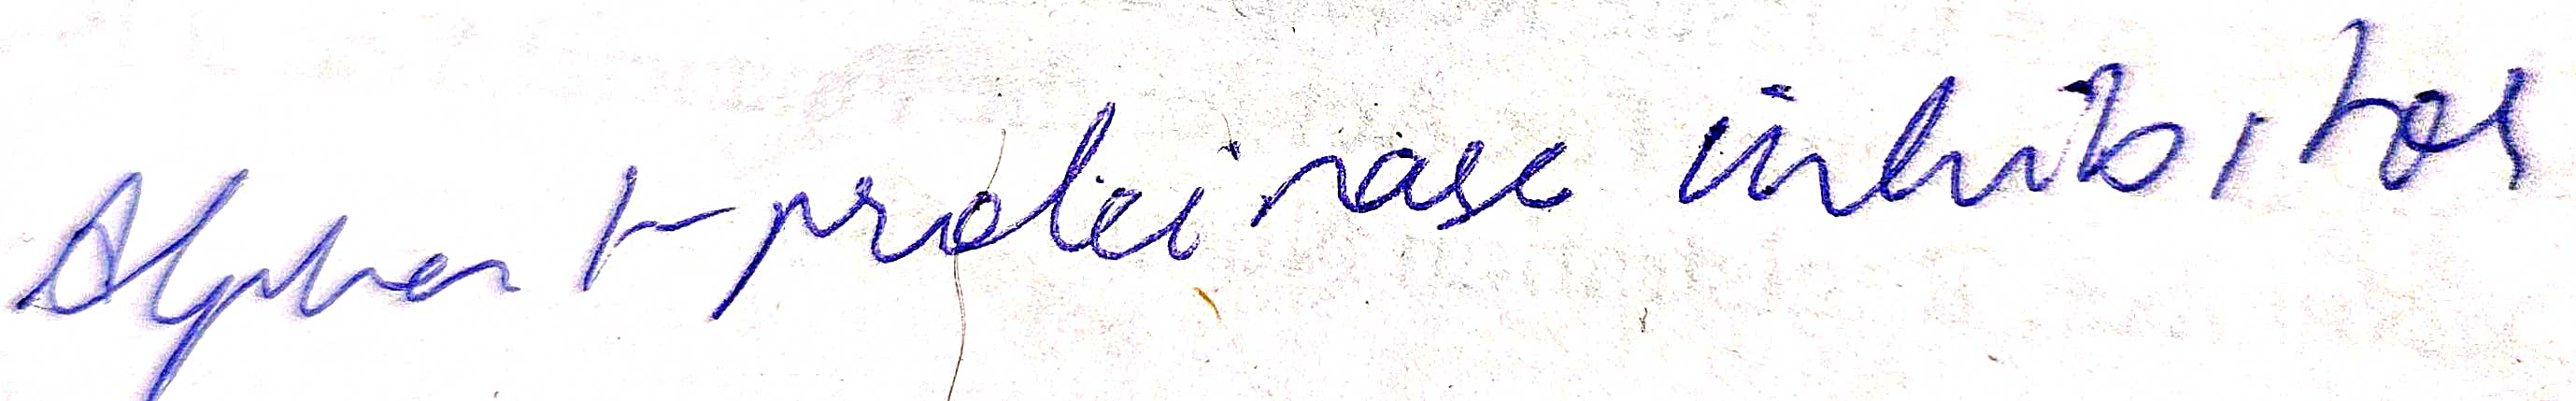 Alpha 1-proteinase inhibitor